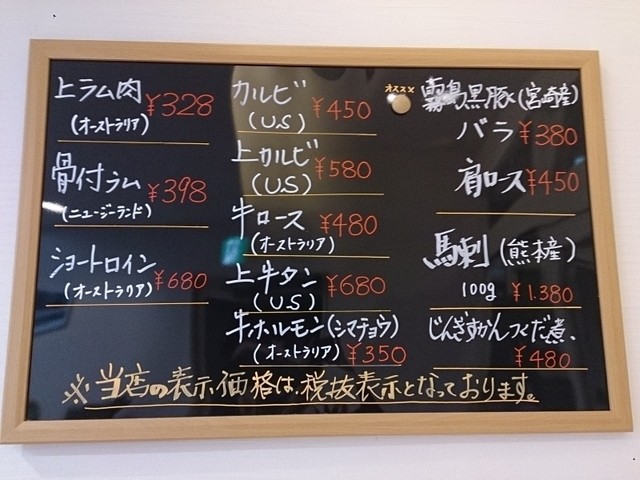 上ラム肉 ¥328
(オーストラリア)
骨付ラム ¥398
(ニュージーランド)
ショートロイン
(オーストラリア) ¥680
カルビ ¥450
(US)
上カルビ ¥580
(US)
牛ロース ¥480
(オーストラリア)
上牛タン ¥680
(US)
牛ホルモン(シマチョウ)
(オーストラリア) ¥350
オススメ 霧島黒豚(宮崎産)
バラ ¥380
肩ロース ¥450
馬刺(熊本産)
100g ¥1.380
じんぎすかんつくだ煮、
¥480
※当店の表示価格は、税抜表示となっております。